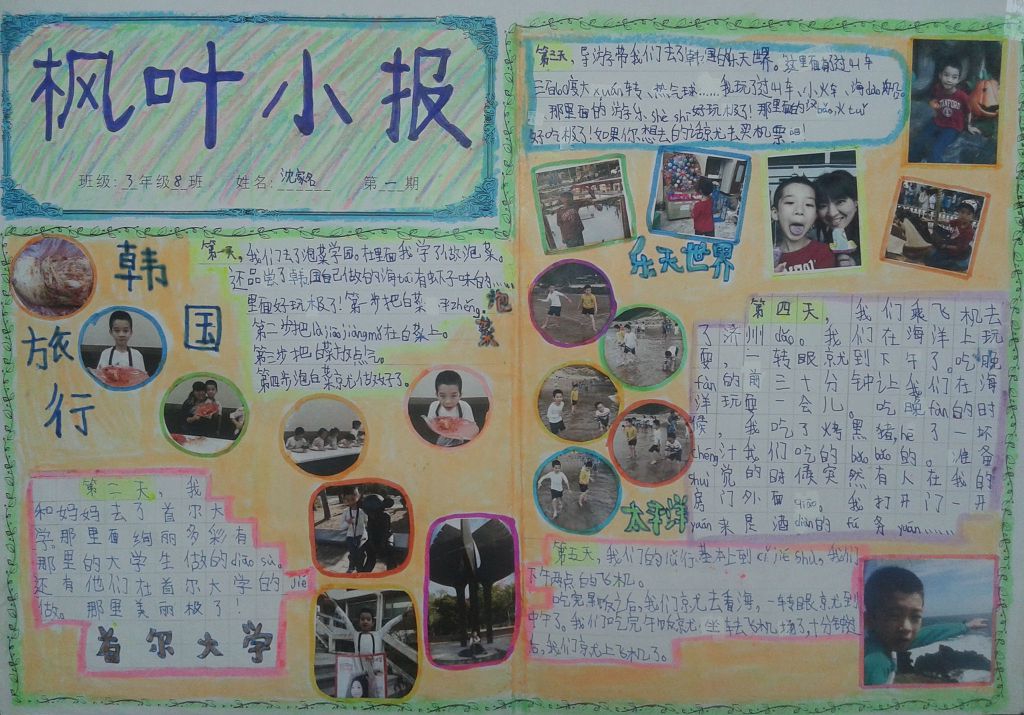 枫叶小报
班级:3年级8班 姓名:沈家名 第一期
韩国
旅行
第一天,我们去了泡菜学园。在里面我学了做泡菜。
还品尝了韩国自己做的海tái有虾子味的……
里面好玩极了!第一步把白菜 zhěng。
第二步把là jiāo jiàng mǒ在白菜上。
第三步把白菜放点气。
第四步泡白菜京尤做好了。
泡菜
第二天,我
和妈妈去了首尔大
学那里面绚丽多彩有
那里的大学生做的diāo sù。
还有他们在首尔大学的jiē
做。那里美丽极了!
首尔大学
第三天,导游带我们去了韩国的乐天世界。这里面有过山车
三百六十度大xuán转、热气球……我玩了过山车、小火车、海dào船。
那里面的游乐shè shī好玩极了!那里面的汉bǎo、火tuǐ
好吃极了!如果你想去的话京尤去买机票吧!
乐天世界
第四天,我们乘飞机去
了济州dǎo。我们在海洋上玩
耍,一转眼京尤到下午了。吃晚
fàn的前三十分钟让我们在海
洋玩耍一会儿。吃晚fàn的时
候,我吃了烤黑猪,hē了一坏
chéng汁我们吃的bǎo bǎo的。准备
shuì觉的时候突然有人在我的
房门外面qiāo。我打开门一开
yuán来是酒diàn的fú务yuán……
太平洋
第五天,我们的旅行基本上到cǐ jié shù,我们
下午两点的飞机。
吃完早饭之后,我们京尤去看海,一转眼京尤到
中午了。我们吃完午饭京尤坐车去飞机场了,十分钟过
后,我们京尤上飞机了。